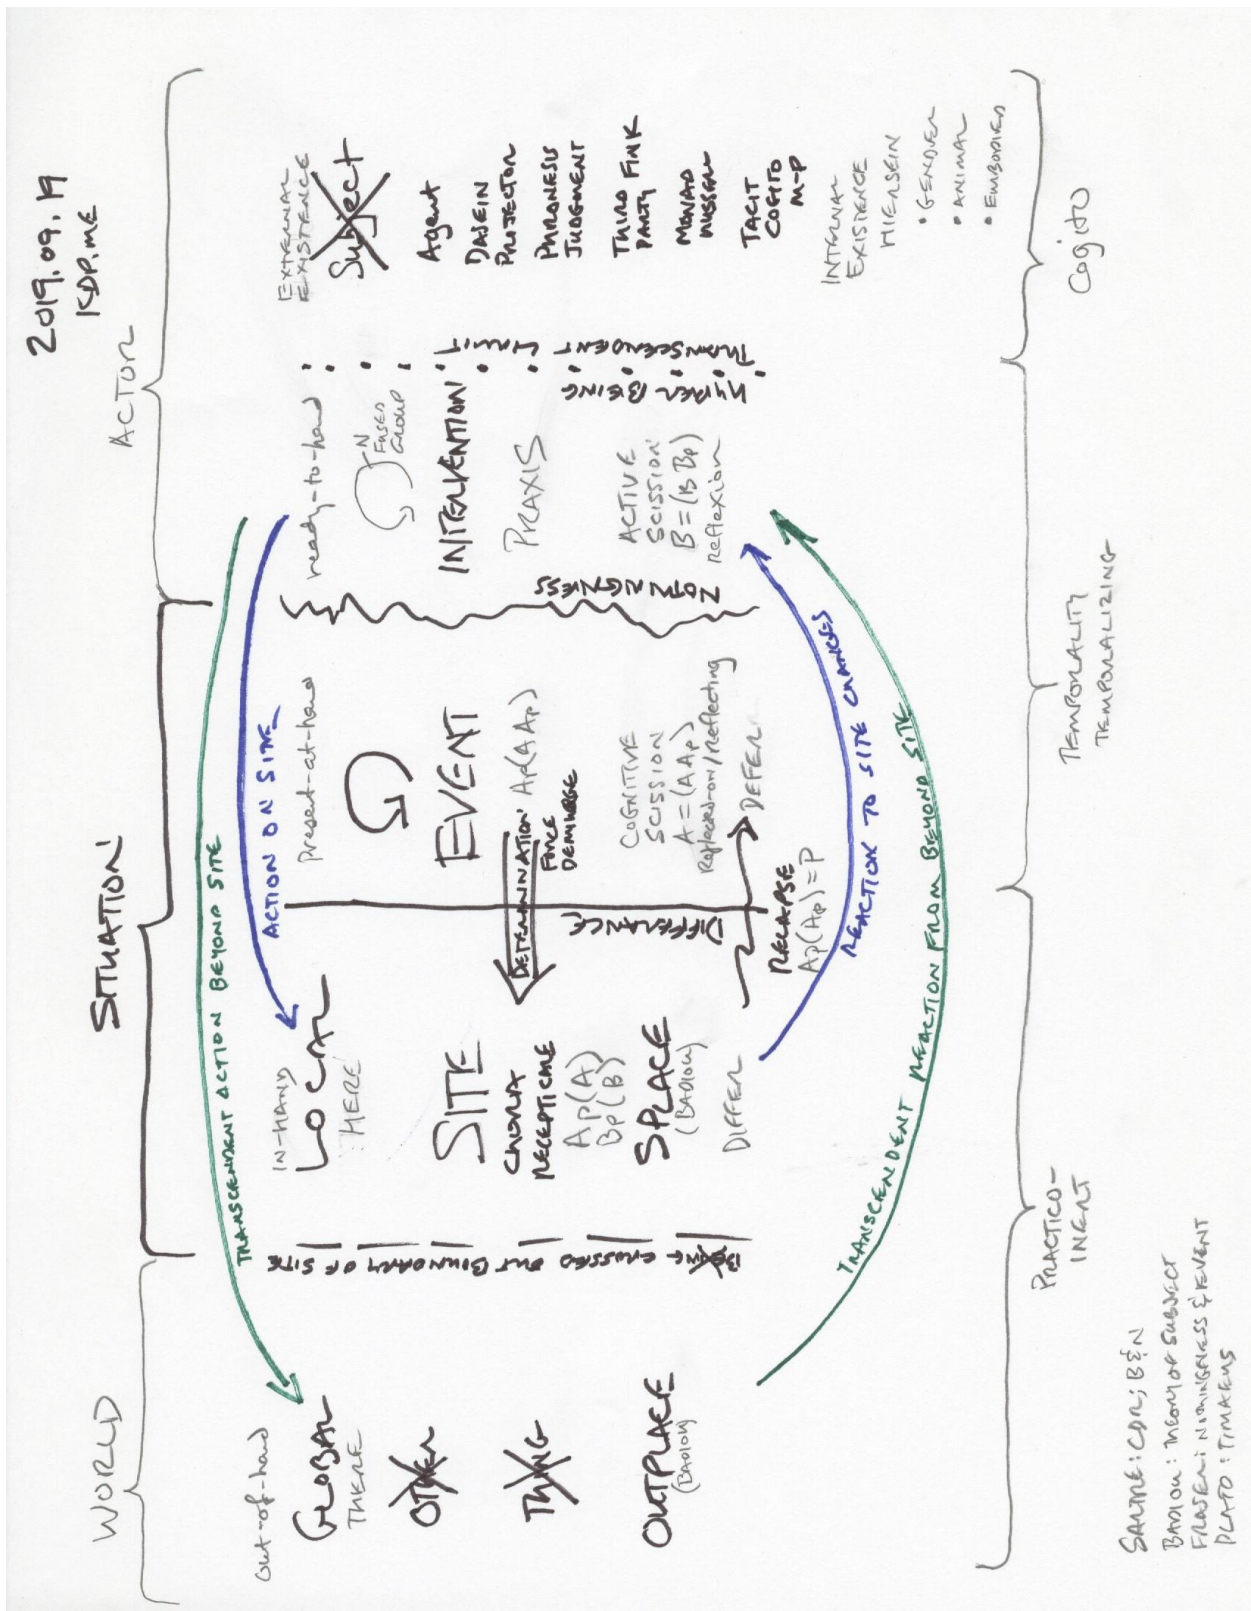 2019.09.19
KDP.ME
WORLD
SITUATION
ACTOR
TRANSCENDENT ACTION BEYOND SITE
ACTION ON SITE
out-of-hand
GLOBAL
THERE
OTHER
THING
OUTPLACE
(BADIOU)
BEING CROSSED OUT BOUNDARY OF SITE
IN-HAND
LOCAL
HERE
SITE
CHORA
RECEPTICAL
Ap(A)
Bp(B)
SPLACE
(BADIOU)
DIFFER
DIFFERANCE
DETERMINATION
FORCE
DEMIURGE
RELAPSE
Ap(Ap)=P
present-at-hand
EVENT
Ap(AAp)
COGNITIVE
SCISSION
A=(AAp)
Reflected-on/reflecting
DEFER
NOTHINGNESS
ready-to-hand
N
FUSED
GROUP
INTERVENTION
PRAXIS
ACTIVE
SCISSION
B=(BBp)
reflexion
HYPER BEING
TRANSCENDENT LIMIT
EXTERNAL
EXISTENCE
Subject
Agent
DASEIN
PROJECTOR
PHRONESIS
JUDGMENT
THIRD
PARTY FINK
MONAD
HUSSERL
TACIT
COGITO
M-P
INTERNAL
EXISTENCE
HIERSEIN
• GENDER
• ANIMAL
• EMBODIED
REACTION TO SITE CHANGES
TRANSCENDENT REACTION FROM BEYOND SITE
PRACTICO-
INERT
TEMPORALITY
TEMPORALIZING
Cogito
SARTRE: CDR; B&N
BADIOU: THEORY OF SUBJECT
FRASER: NOTHINGNESS & EVENT
PLATO: TIMAEUS